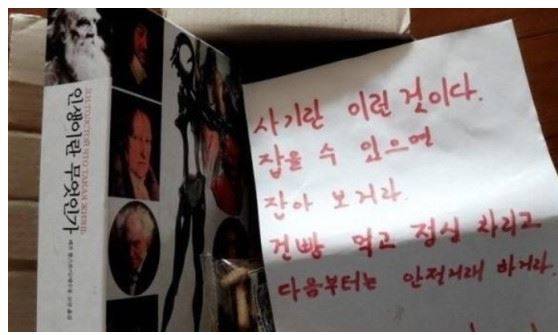 인생이란 무엇인가
사기란 이런 것이다.
잡을 수 있으면
잡아 보거라.
건빵 먹고 정신 차리고
다음부터는 안전거래 하거라.